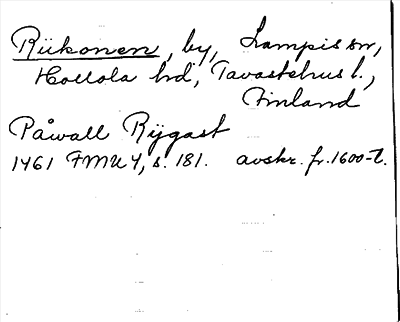 Riikonen, by, Lampis sn,
Hollola hd, Tavastehus l.,
Finland
Påwall Rÿgast
1461 FMU 4, s. 181. avskr. fr. 1600-t.